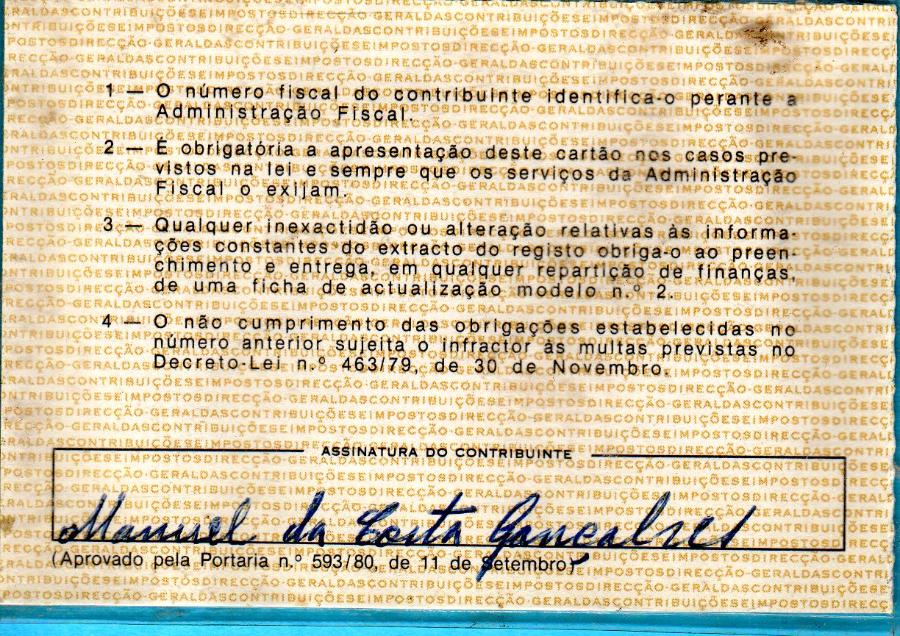 1 — O número fiscal do contribuinte identifica-o perante a
Administração Fiscal.
2 — É obrigatória a apresentação deste cartão nos casos pre-
vistos na lei e sempre que os serviços da Administração
Fiscal o exijam.
3 — Qualquer inexactidão ou alteração relativas às informa-
ções constantes do extracto do registo obriga-o ao preen-
chimento e entrega, em qualquer repartição de finanças,
de uma ficha de actualização modelo n.º 2.
4 — O não cumprimento das obrigações estabelecidas no
número anterior sujeita o infractor às multas previstas no
Decreto-Lei n.º 463/79, de 30 de Novembro.
ASSINATURA DO CONTRIBUINTE
Manuel da Costa Gonçalves
(Aprovado pela Portaria n.º 593/80, de 11 de Setembro)